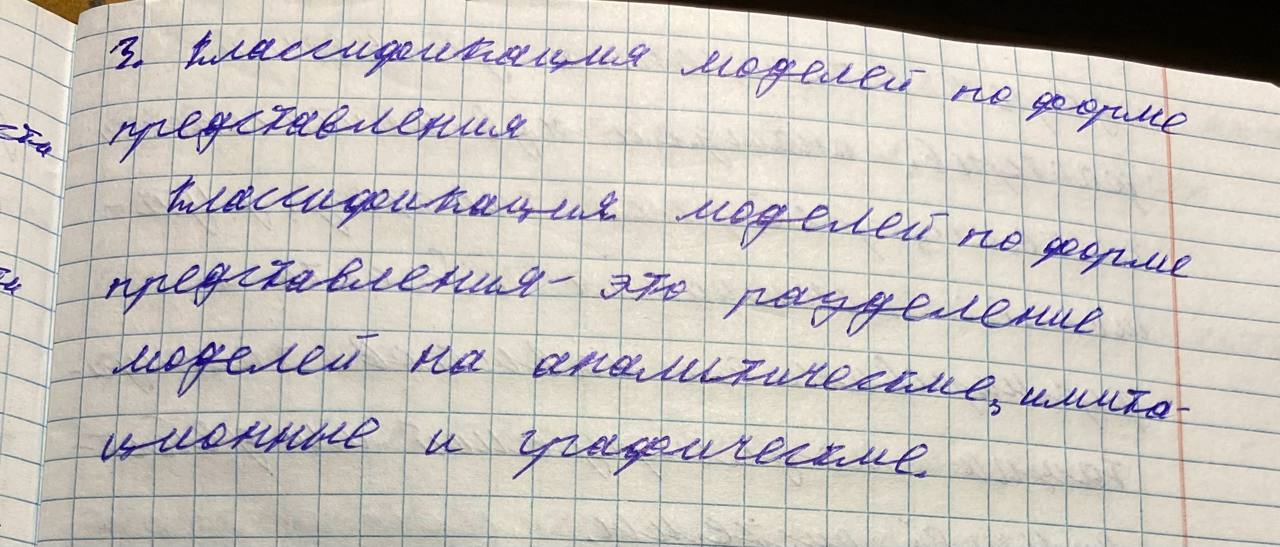 3. Классификация моделей по форме
представления
Классификация моделей по форме
представления - это разделение
моделей на аналитические, имита-
ционные и графические.